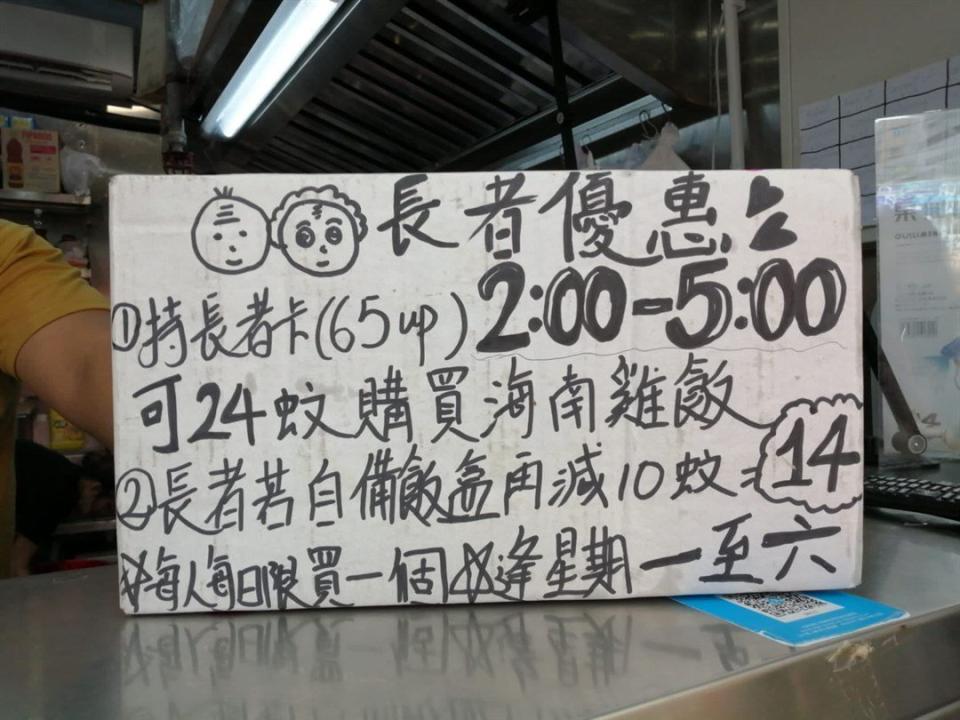 長者優惠
①持長者卡(65up) 2:00-5:00
可24蚊購買海南雞飯
②長者若自備飯盒再減10蚊=14
*每人每日限買一個 *逢星期一至六